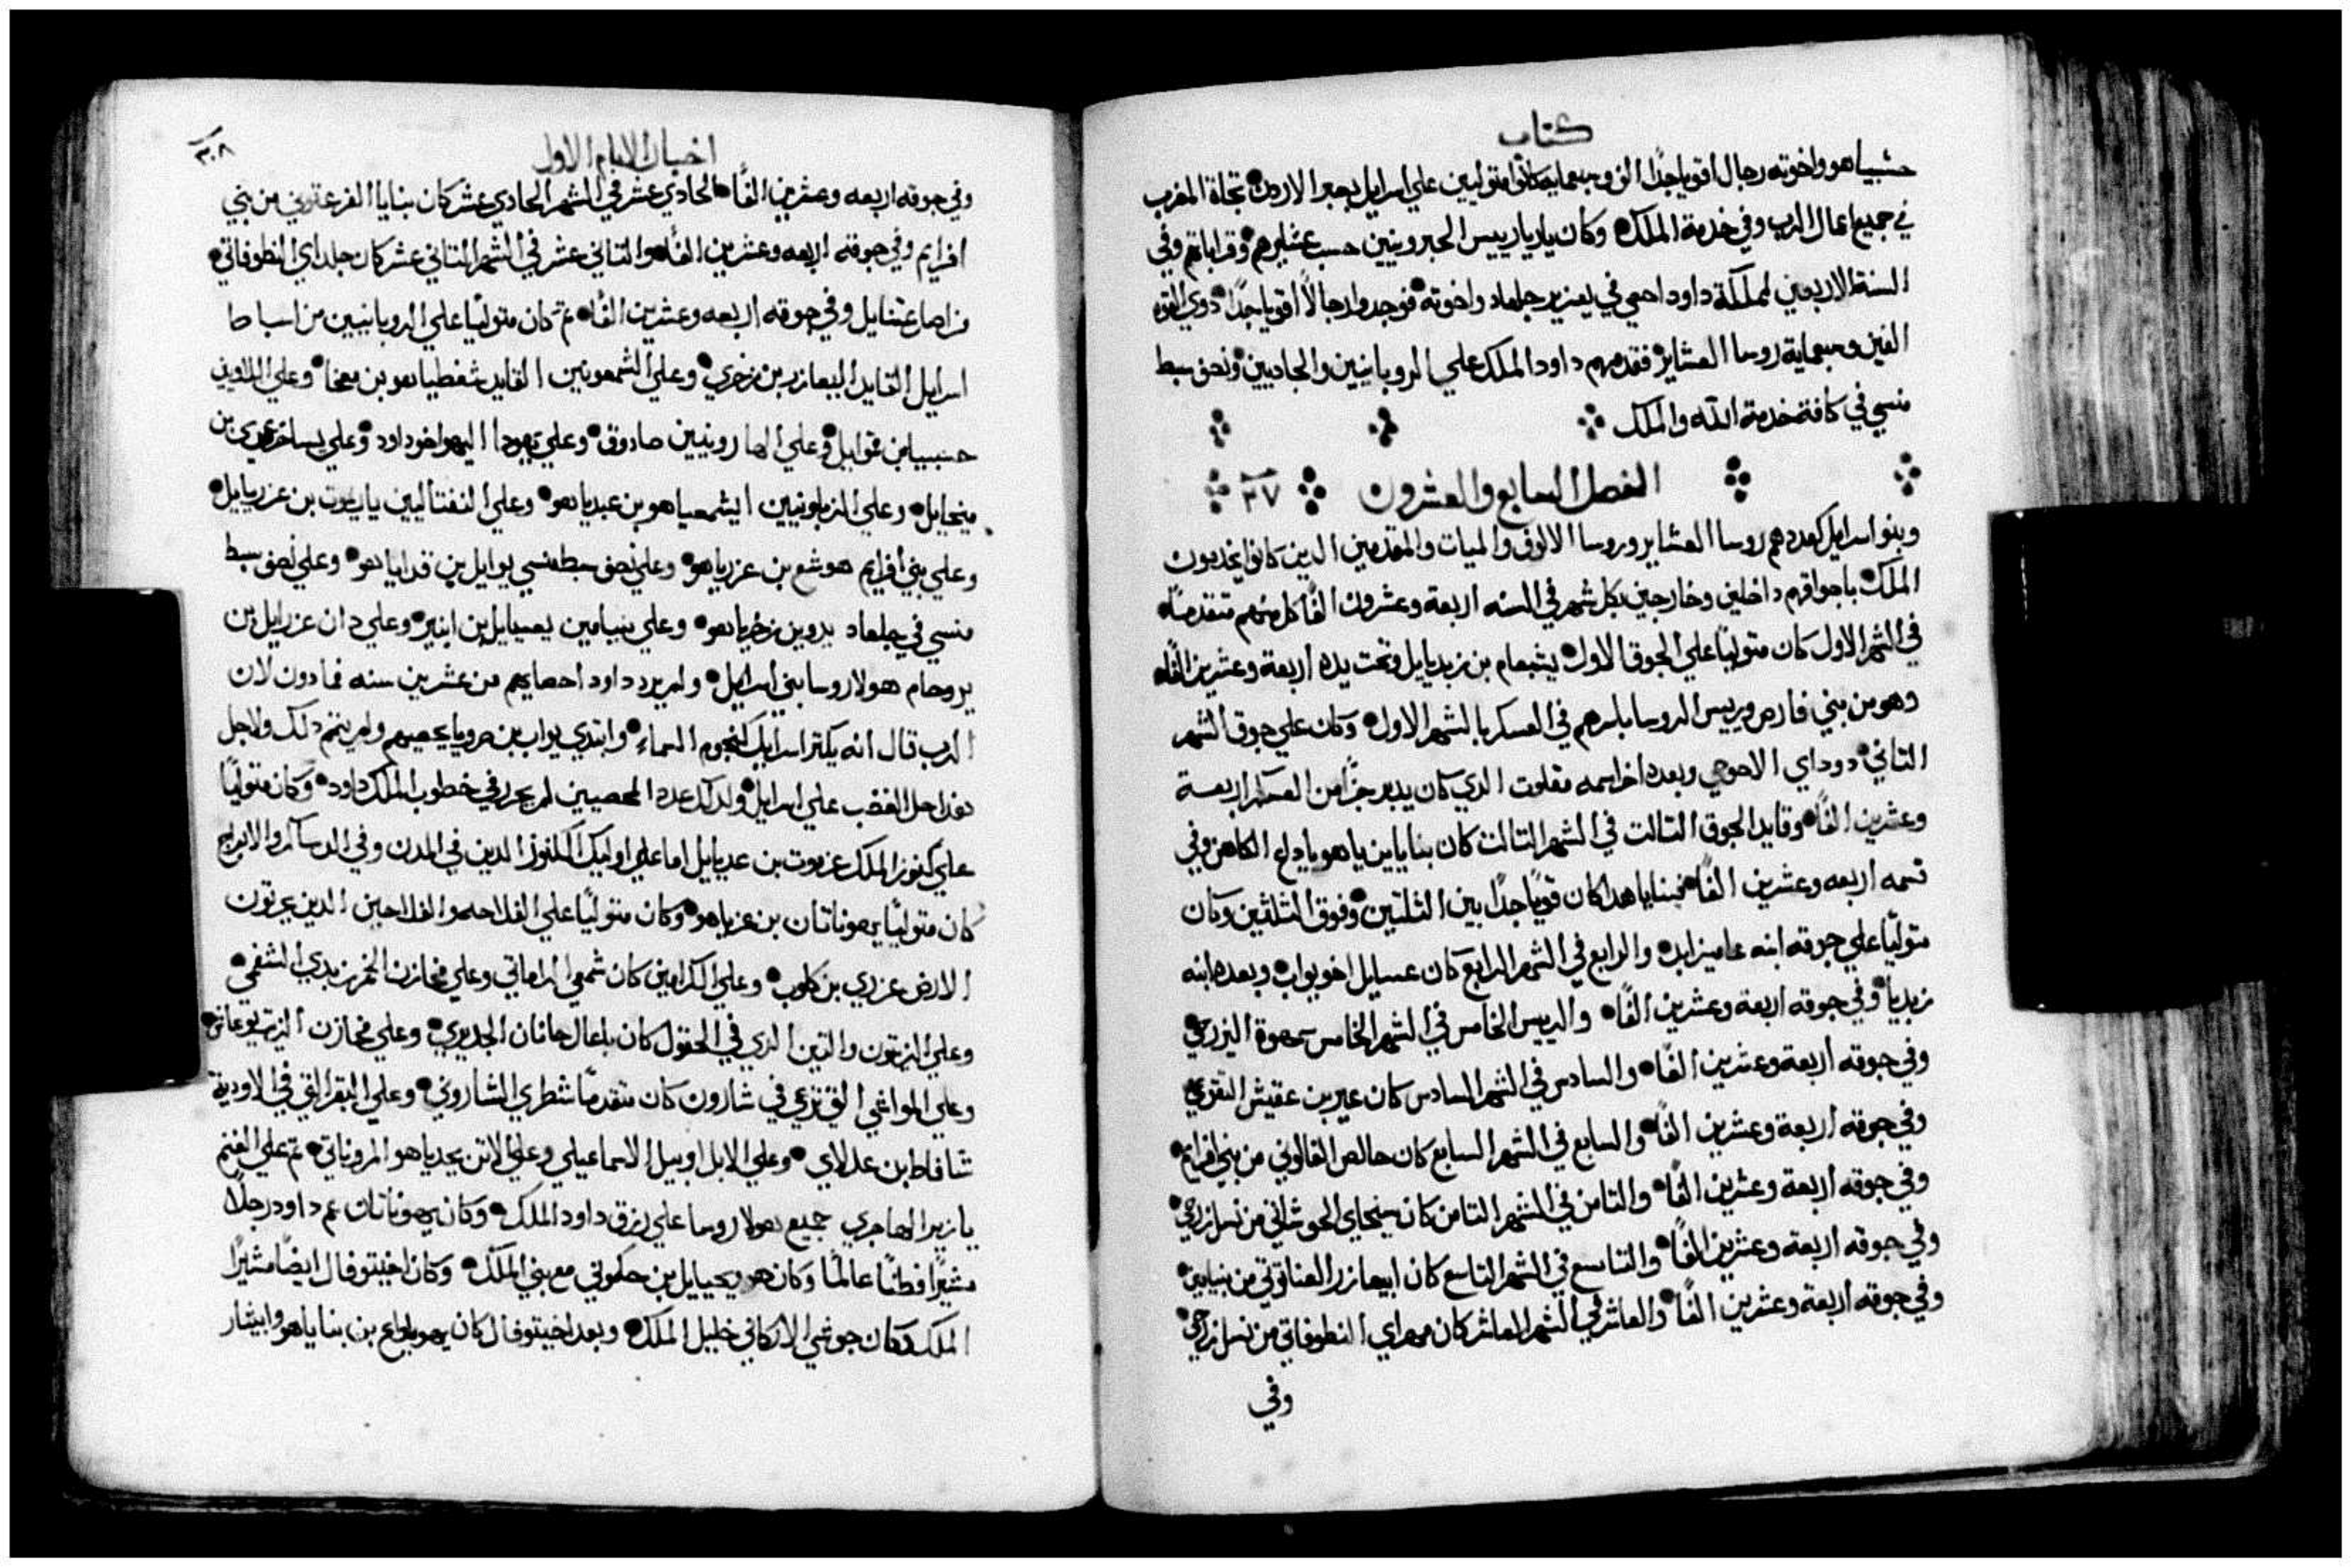 كتاب
حشبياهو واخوته رجال اقوياجدًا الف وسبعمايه كانوا متوليين علي اسرايل بعبر الاردن تجاة المغرب
في جميع اعمال الرب وفي خدمة الملك وكان ياريا رييس الحبرونيين حسب عشايرهم وقراباتهم وفي
السنة الاربعين لمملكة داود احصي في يعزير جلعاد واخوته فوجدوا رجالاً اقوياجدًا دوي القوه
الفين وسبعماية روسا العشاير فقدمهم داود الملك علي الروبانيين والجاديين ونصف سبط
منسي في كافة خدمة الله والملك
الفصل السابع والعشرون ٢٧
وبنو اسرايل كعددهم روسا العشاير وروسا الالوف والميات والمقدمين الدين كانوا يخدمون
الملك باجواقهم داخلين وخارجين بكل شهر في السنه اربعة وعشرون الفًا كل منهم متقدمًا
في الشهر الاول كان متوليًا علي الجوق الاول يشبعام بن زبديايل وتحت يده اربعة وعشرين الفًا
وهو من بني فارص ورييس الروسا باسرهم في العسكر بالشهر الاول وكان علي جوق الشهر
التاني دوداي الاحوحي وبعده اخر اسمه مقلوت الدي كان يدبر جزًا من العسكر اربعة
وعشرين الفًا وقايد الجوق التالت في الشهر التالت كان بنايا بن ياهوياداع الكاهن وفي
قسمه اربعه وعشرين الفًا فبنايا هدا كان قويًا جدًا بين الثلثين وفوق الثلثين وكان
متوليًا علي جوقه ابنه عاميزاباد والرابع في الشهر الرابع كان عسايل اخو يواب وبعده ابنه
زبديا وفي جوقه اربعة وعشرين الفًا والرييس الخامس في الشهر الخامس سمهوة اليزرحي
وفي جوقه اربعة وعشرين الفًا والسادس في الشهر السادس كان عير بن عقيش التقوعي
وفي جوقه اربعة وعشرين الفًا والسابع في الشهر السابع كان حالص الفالوني من بني افرايم
وفي جوقه اربعة وعشرين الفًا والتامن في الشهر التامن كان سبحاي الحوشاتي من نسل زرحي
وفي جوقه اربعة وعشرين الفًا والتاسع في الشهر التاسع كان ابيعازر العناتوتي من بنيامين
وفي جوقه اربعة وعشرين الفًا والعاشر في الشهر العاشر كان مهراي النطوفاتي من نسل زرحي
وفي
اخبار الايام الاول ٣٠٨
وفي جوقه اربعه وعشرين الفًا الحادي عشر في الشهر الحادي عشر كان بنايا الفرعتوني من بني
افرايم وفي جوقته اربعه وعشرين الفًا والتاني عشر في الشهر التاني عشر كان حلداي النطوفاتي
من اصل عتنايل وفي جوقه اربعه وعشرين الفًا تم كان متوليًا علي الروبانيين من اسباط
اسرايل القايد اليعازر بن زخري وعلي الشمعونيين القايد شفطياهو بن معخا وعلي اللاويين
حسبيا بن قموايل وعلي الهارونيين صادوق وعلي يهودا اليهو اخو داود وعلي يساخر عمري بن
ميخايل وعلي الزبلونيين ايشمعياهو بن عبدياهو وعلي النفتاليين ياريموت بن عزريايل
وعلي بني افرايم هوشع بن عزرياهو وعلي نصف سبط منسي يوايل بن فداياهو وعلي نصف سبط
منسي في جلعاد يدو بن زخرياهو وعلي بنيامين يعسيايل بن ابنير وعلي دان عزرايل بن
يروحام هولا روسا بني اسرايل ولم يرد داود احصايهم من عشرين سنه فما دون لان
الرب قال انه يكتر اسرايل كنجوم السماء وابتدي يواب بن صرويا يحصيهم ولم يتم دلك ولاجل
هدا حل الغضب علي اسرايل ولدلك عدد المحصيين لم يحرر في خطوب الملك داود وكان متوليًا
علي كنوز الملك عزموت بن عديايل اما علي اوليك الكنوز الدين في المدن وفي الدساكر والابراج
كان متوليًا يهوناتان بن عزياهو وكان متوليًا علي الفلاحه والفلاحين الدين يحرتون
الارض عزري بن كلوب وعلي الكرامين كان شمعي الراماتي وعلي مخازن الخمر زبدي الشفمي
وعلي الزيتون والتين الدي في الحقول كان بلعال حانان الجديري وعلي مخازن الزيت يوعاش
وعلي المواشي التي ترعي في شارون كان متقدمًا شطري الشاروني وعلي البقر التي في الاودية
شافاط بن عدلاي وعلي الابل اوبيل الاسماعيلي وعلي الاتن يحدياهو المروناتي تم علي الغنم
يازير الهاجري جميع هولا روسا علي رزق داود الملك وكان يهوناتان عم داود رجلاً
مشيرًا فطنًا عالمًا وكان هو ويحيايل بن حكموني مع بني الملك وكان اخيتوفال ايضًا مشيرًا
الملك وكان حوشي الاركاني خليل الملك وبعد اخيتوفال كان يهوياداع بن بناياهو وابيتار